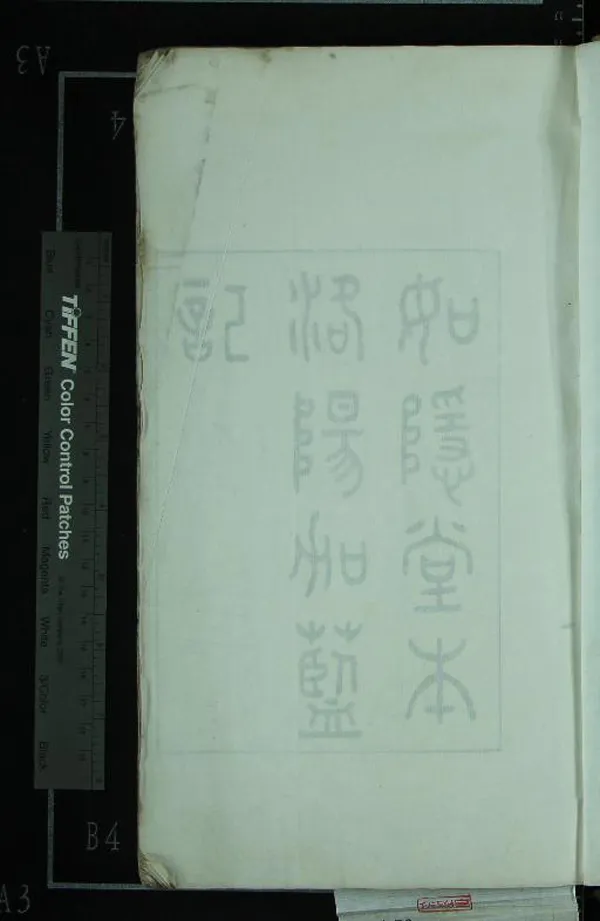 如隱堂本
洛陽伽藍
記
TIFFEN Color Control Patches
Blue Cyan Green Yellow Red Magenta White 3/Color Black
A3
4
B4
A3